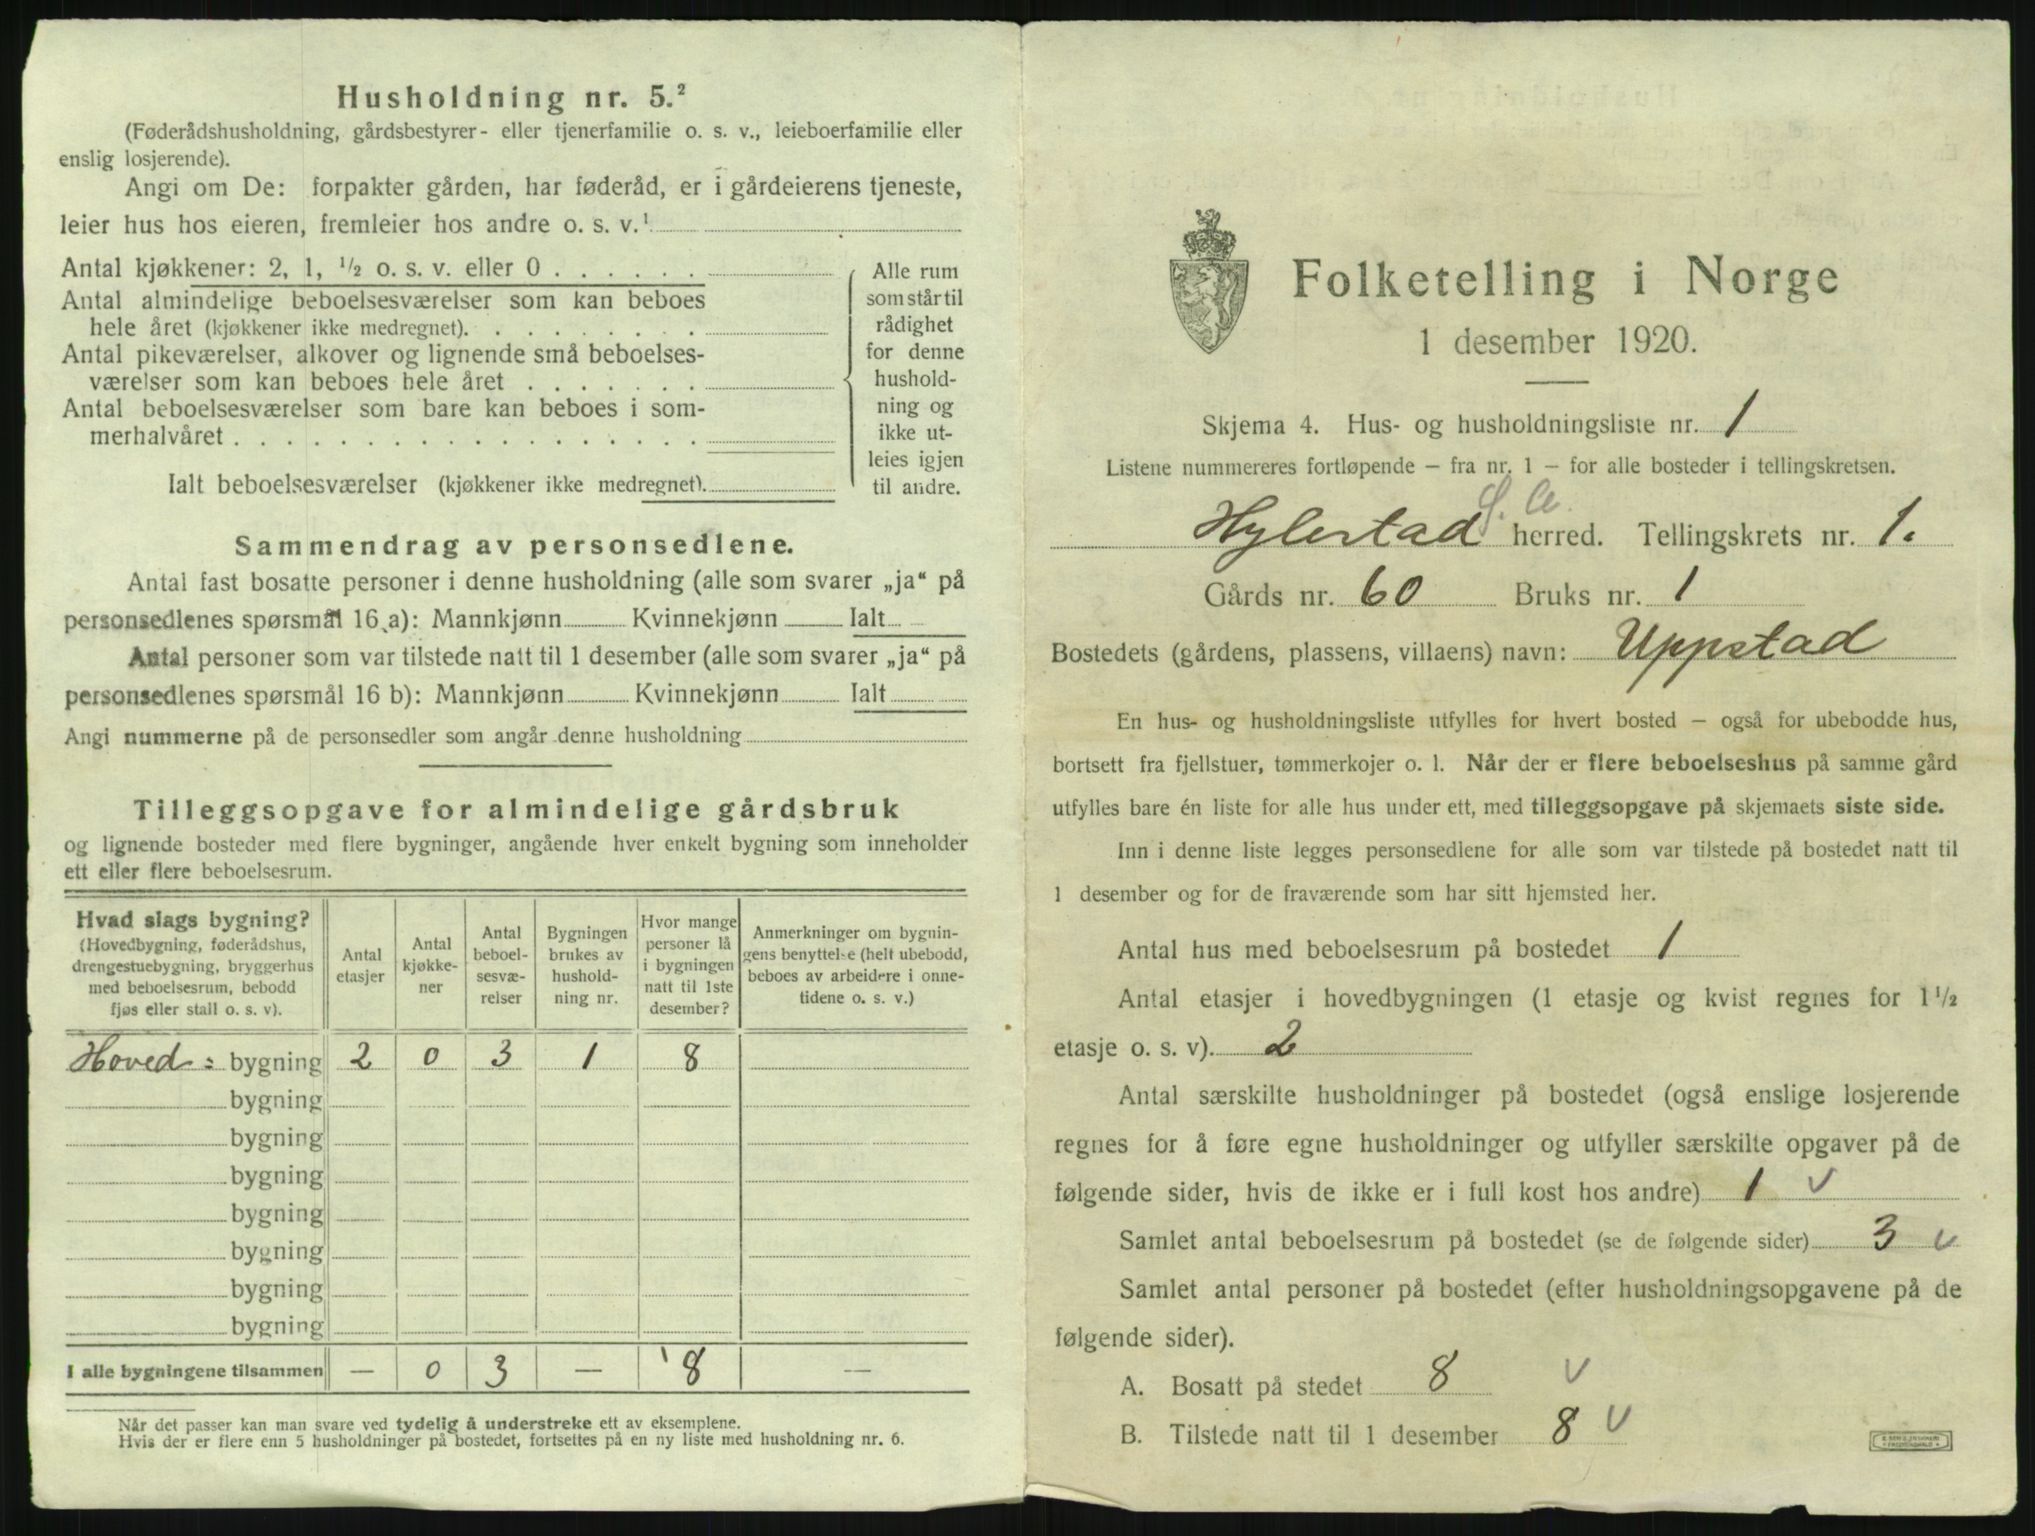 Husholdning nr. 5.²
(Føderådshusholdning, gårdsbestyrer- eller tjenerfamilie o. s. v., leieboerfamilie eller
enslig losjerende).
Angi om De: forpakter gården, har føderåd, er i gårdeierens tjeneste,
leier hus hos eieren, fremleier hos andre o. s. v.¹
Antal kjøkkener: 2, 1, ½ o. s. v. eller 0
Antal almindelige beboelsesværelser som kan beboes
hele året (kjøkkener ikke medregnet).
Antal pikeværelser, alkover og lignende små beboelses-
værelser som kan beboes hele året
Antal beboelsesværelser som bare kan beboes i som-
merhalvåret
Ialt beboelsesværelser (kjøkkener ikke medregnet).
Alle rum
som står til
rådighet
for denne
hushold-
ning og
ikke ut-
leies igjen
til andre.
Sammendrag av personsedlene.
Antal fast bosatte personer i denne husholdning (alle som svarer „ja“ på
personsedlenes spørsmål 16 a): Mannkjønn Kvinnekjønn Ialt
Antal personer som var tilstede natt til 1 desember (alle som svarer „ja“ på
personsedlenes spørsmål 16 b): Mannkjønn Kvinnekjønn Ialt
Angi nummerne på de personsedler som angår denne husholdning
Tilleggsopgave for almindelige gårdsbruk
og lignende bosteder med flere bygninger, angående hver enkelt bygning som inneholder
ett eller flere beboelsesrum.
Hvad slags bygning?
(Hovedbygning, føderådshus,
drengestuebygning, bryggerhus
med beboelsesrum, bebodd
fjøs eller stall o. s. v).
Antal
etasjer
Antal
kjøkke-
ner
Antal
beboel-
sesvæ-
relser
Bygningen
brukes av
hushold-
ning nr.
Hvor mange
personer lå
i bygningen
natt til 1ste
desember?
Anmerkninger om bygnin-
gens benyttelse (helt ubebodd,
beboes av arbeidere i onne-
tidene o. s. v.)
Hoved- bygning 2 0 3 1 8
bygning
bygning
bygning
bygning
bygning
bygning
bygning
I alle bygningene tilsammen — 0 3 — 8 —
Når det passer kan man svare ved tydelig å understreke ett av eksemplene.
Hvis der er flere enn 5 husholdninger på bostedet, fortsettes på en ny liste med husholdning nr. 6.
Folketelling i Norge
1 desember 1920.
Skjema 4. Hus- og husholdningsliste nr. 1
Listene nummereres fortløpende – fra nr. 1 – for alle bosteder i tellingskretsen.
Hylestad herred. Tellingskrets nr. 1.
Gårds nr. 60 Bruks nr. 1
Bostedets (gårdens, plassens, villaens) navn: Uppstad
En hus- og husholdningsliste utfylles for hvert bosted – også for ubebodde hus,
bortsett fra fjellstuer, tømmerkojer o. l. Når der er flere beboelseshus på samme gård
utfylles bare én liste for alle hus under ett, med tilleggsopgave på skjemaets siste side.
Inn i denne liste legges personsedlene for alle som var tilstede på bostedet natt til
1 desember og for de fraværende som har sitt hjemsted her.
Antal hus med beboelsesrum på bostedet 1
Antal etasjer i hovedbygningen (1 etasje og kvist regnes for 1½
etasje o. s. v). 2
Antal særskilte husholdninger på bostedet (også enslige losjerende
regnes for å føre egne husholdninger og utfyller særskilte opgaver på de
følgende sider, hvis de ikke er i full kost hos andre) 1 v
Samlet antal beboelsesrum på bostedet (se de følgende sider) 3 v
Samlet antal personer på bostedet (efter husholdningsopgavene på de
følgende sider).
A. Bosatt på stedet 8 v
B. Tilstede natt til 1 desember 8 v